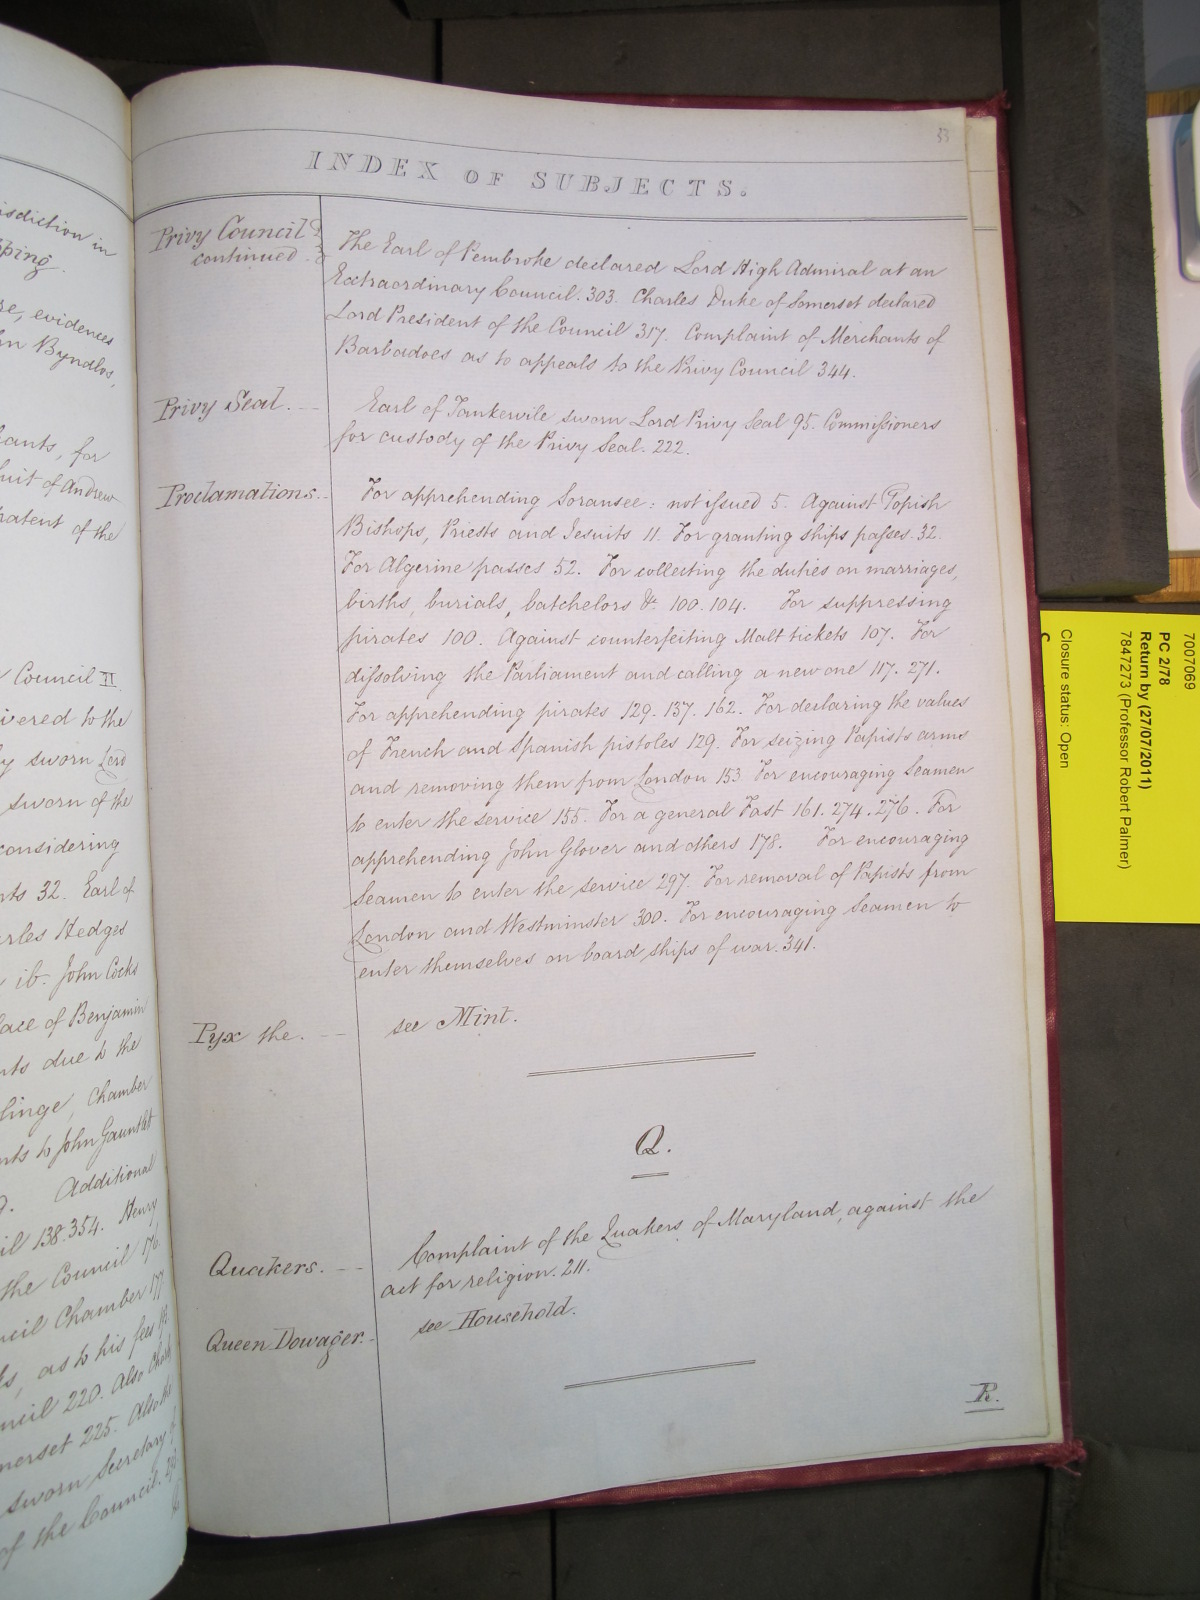 isdiction in
pping.
re, evidences
n Byndlos,
hants, for
suit of Andrew
patent of the
Council II.
ivered to the
y sworn Lord
sworn of the
considering
nts 32. Earl of
arles Hedges
ib. John Cocks
lace of Benjamin
nts due to the
linge, Chamber
nts to John Gauntlet
Additional
il 138.354. Henry
the Council 176.
ncil Chamber 177
ls, as to his fees
ncil 220. Also
merset 225. Also the
sworn Secretary
of the Council.
33
INDEX OF SUBJECTS.
Privy Council
continued
The Earl of Pembroke declared Lord High Admiral at an
Extraordinary Council. 303. Charles Duke of Somerset declared
Lord President of the Council 317. Complaint of Merchants of
Barbadoes as to appeals to the Privy Council 344.
Privy Seal.
Earl of Tankervile sworn Lord Privy Seal 95. Commissioners
for custody of the Privy Seal. 222.
Proclamations.
For apprehending Soransee: not issued 5. Against Popish
Bishops, Priests and Jesuits 11. For granting ships passes. 32.
For Algerine passes 52. For collecting the duties on marriages,
births, burials, batchelors &c. 100. 104. For suppressing
pirates 100. Against counterfeiting Malt tickets 107. For
dissolving the Parliament and calling a new one 117. 271.
For apprehending pirates 129. 137. 162. For declaring the values
of French and Spanish pistoles 129. For seizing Papists arms
and removing them from London 153 For encouraging Seamen
to enter the service 155. For a general Fast 161. 274. 276. For
apprehending John Glover and others 178. For encouraging
Seamen to enter the service 297. For removal of Papists from
London and Westminster 300. For encouraging Seamen to
enter themselves on board ships of war. 341.
Pyx the.
see Mint.
Q.
Quakers.
Complaint of the Quakers of Maryland, against the
act for religion. 211.
Queen Dowager.
see Household.
R.
7007069
PC 2/78
Return by (27/07/2011)
7847273 (Professor Robert Palmer)
Closure status: Open